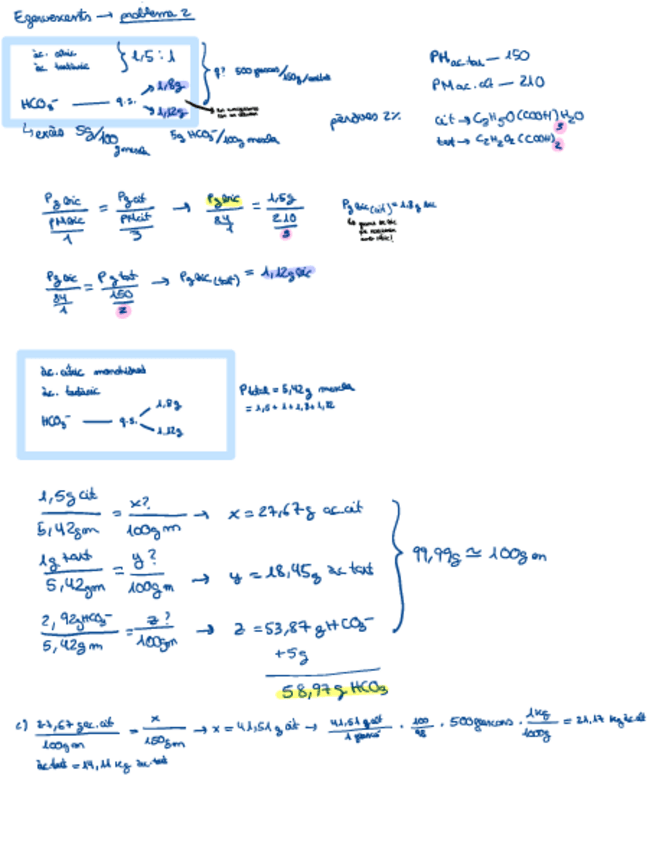 Efervescents → problema 2
àc. cítric
àc. tartàric } 1,5 : 1 } q? 500 flascons/150g/
HCO₃⁻ — q.s. → 1,8g
→ 1,12g
↳ excés 5g/100g mescla 5g HCO₃⁻/100g mescla pèrdues 2%
PM ac. tar — 150
PM ac. cit — 210
cit → C₃H₅O(COOH)₃H₂O
tart → C₂H₂O₂(COOH)₂
Pg bic / (PM bic / 1) = Pg cit / (PM cit / 3) → Pg bic / (84 / 1) = 1,5g / (210 / 3) Pg bic (cit) = 1,8g bic
Pg bic / (84 / 1) = Pg tat / (150 / 2) → Pg bic (tat) = 1,12g bic
àc. cítric monohidrat
àc. tartàric
HCO₃⁻ — q.s. → 1,8g
→ 1,12g
Ptotal = 5,42g mescla
= 1,5 + 1 + 1,8 + 1,12
1,5g cit / 5,42gm = x? / 100gm → x = 27,67g ac.cit
1g tart / 5,42gm = y? / 100gm → y = 18,45g àc tart
2,92gHCO₃⁻ / 5,42gm = z? / 100gm → z = 53,87g HCO₃⁻
} 99,99g ≃ 100gm
+5g
58,97g HCO₃
c) 27,67g ac.cit / 100gm = x / 150gm → x = 41,51g cit → 41,51g cit / 1 flascó · 100 / 98 · 500 flascons · 1kg / 1000g = 21,17 kg àc.cit
àc tart = 14,11 kg àc.tart